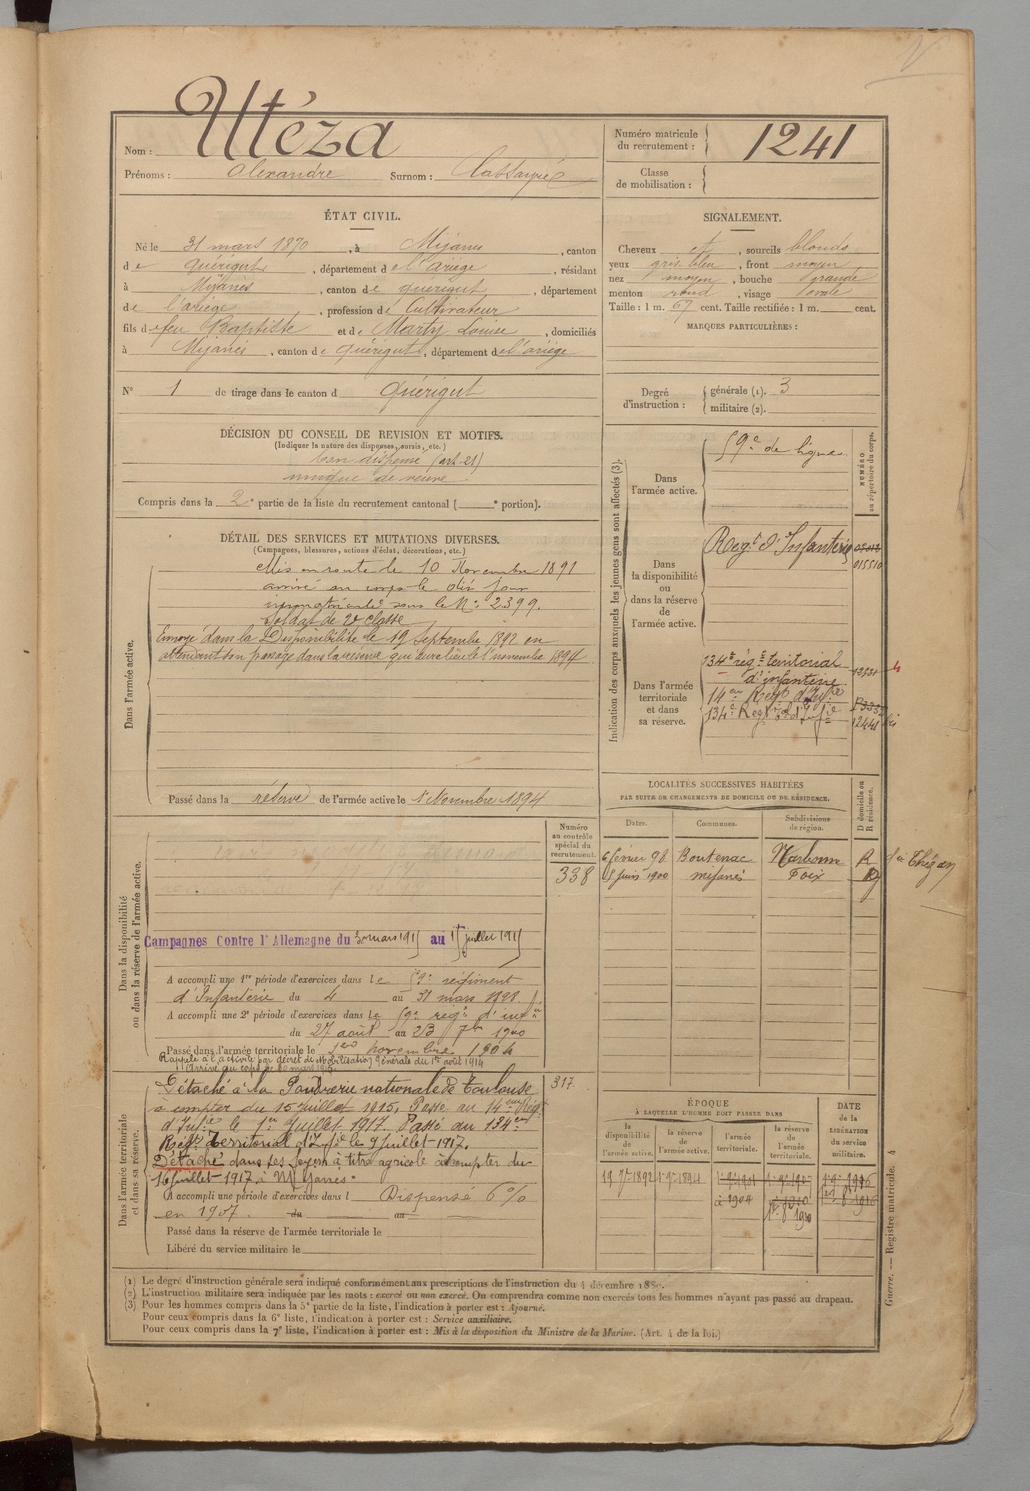 Utéza
Nom :
Prénoms : Alexandre Surnom :
Numéro matricule du recrutement : 1241
Classe de mobilisation :
ÉTAT CIVIL.
Né le 31 mars 1870, à Mijanès, canton
de Quérigut, département de l'Ariège, résidant
à Mijanès, canton de Quérigut, département
de l'Ariège, profession de Cultivateur
fils de feu Baptiste et de Marty Louise, domiciliés
à Mijanès, canton de Quérigut, département de l'Ariège
N° 1 de tirage dans le canton d Quérigut
SIGNALEMENT.
Cheveux et, sourcils blonds
yeux gris bleu, front moyen
nez moyen, bouche grande
menton rond, visage ovale
Taille : 1 m. 67 cent. Taille rectifiée : 1 m. cent.
MARQUES PARTICULIÈRES :
Degré d'instruction : générale (1). 3
militaire (2).
DÉCISION DU CONSEIL DE REVISION ET MOTIFS.
(Indiquer la nature des dispenses, sursis, etc.)
bon dispensé (art. 21)
unique de veuve
Compris dans la 2e partie de la liste du recrutement cantonal ( e portion).
DÉTAIL DES SERVICES ET MUTATIONS DIVERSES.
(Campagnes, blessures, actions d'éclat, décorations, etc.)
Dans l'armée active.
Mis en route le 10 Novembre 1891
arrivé au corps le dit jour
immatriculé sous le N° 2399.
Soldat de 2e classe
Envoyé dans la Disponibilité le 19 Septembre 1892 en
attendant son passage dans la réserve qui aura lieu le 1er novembre 1894
Passé dans la réserve de l'armée active le 1er Novembre 1894
Indication des corps auxquels les jeunes gens sont affectés (3).
NUMÉRO au répertoire du corps.
Dans l'armée active.
59e de ligne
Dans la disponibilité ou dans la réserve de l'armée active.
Regt d'Infanterie
015510
Dans l'armée territoriale et dans sa réserve.
134e régt territorial
d'infanterie
14eme Regt d'Infie
134e Regt d'Infie
LOCALITÉS SUCCESSIVES HABITÉES
PAR SUITE DE CHANGEMENTS DE DOMICILE OU DE RÉSIDENCE.
D domicile ou R résidence.
Dates. Communes. Subdivisions de région.
6 février 98 Boutenac Narbonne R
5 juin 1900 Mijanès Foix
Dans la disponibilité ou dans la réserve de l'armée active.
Numéro au contrôle spécial du recrutement.
338
Campagnes Contre l'Allemagne du 30 mars 1915 au 15 juillet 1915
A accompli une 1re période d'exercices dans le 59e régiment
d'Infanterie du 4 au 31 mars 1898
A accompli une 2e période d'exercices dans le 59e regt d'infie
du 27 août au 23 7bre 1900
Passé dans l'armée territoriale le 1er novembre 1904
Rappelé à l'activité par décret de Mobilisation générale du 1er août 1914
Dans l'armée territoriale et dans sa réserve.
317
Détaché à la Poudrerie nationale de Toulouse
à compter du 15 juillet 1915. Passé au 14eme Régt
d'Infie le 1er Juillet 1917. Passé au 134eme
Régt Territorial d'Infie le 9 juillet 1917.
Détaché dans ses foyers à titre agricole à compter du
16 juillet 1917 à Mijanès.
A accompli une période d'exercices dans l Dispensé 6%
en 1907. du au
Passé dans la réserve de l'armée territoriale le
Libéré du service militaire le
ÉPOQUE
À LAQUELLE L'HOMME DOIT PASSER DANS
la disponibilité de l'armée active.
la réserve de l'armée active.
l'armée territoriale.
la réserve de l'armée territoriale.
DATE de la LIBÉRATION du service militaire.
19 7bre 1892
à 1904
Guerre. — Registre matricule. 4
(1) Le degré d'instruction générale sera indiqué conformément aux prescriptions de l'instruction du 4 décembre 1889.
(2) L'instruction militaire sera indiquée par les mots : exercé ou non exercé. On comprendra comme non exercés tous les hommes n'ayant pas passé au drapeau.
(3) Pour les hommes compris dans la 5e partie de la liste, l'indication à porter est : Ajourné.
Pour ceux compris dans la 6e liste, l'indication à porter est : Service auxiliaire.
Pour ceux compris dans la 7e liste, l'indication à porter est : Mis à la disposition du Ministre de la Marine. (Art. 4 de la loi.)